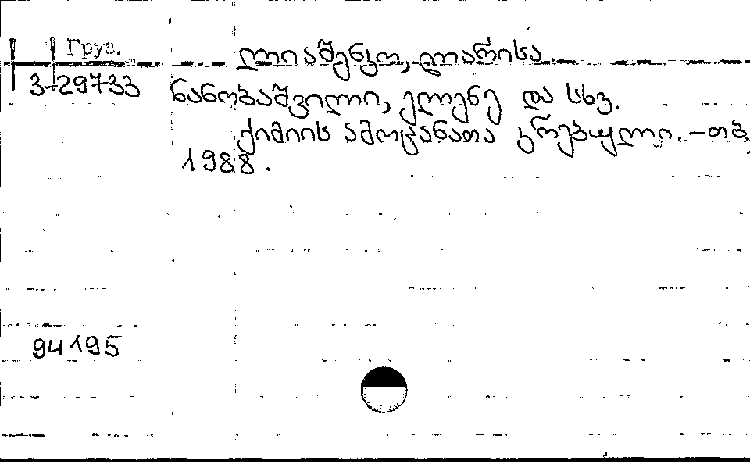 Груз.
ლიაშენკო, ლარისა
3-29733 ნანობაშვილი, ელენე და სხვ.
ქიმიის ამოცანათა კრებული. – თბ.
1988.
94195